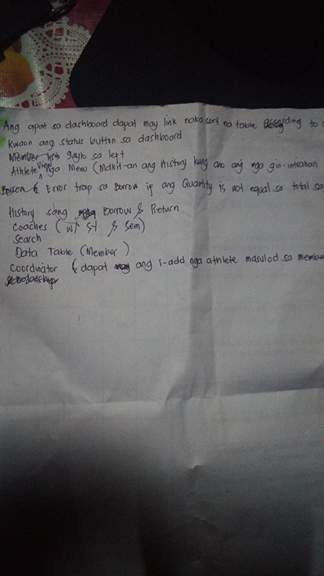 Ang apat sa dashboard dapat may link naka sort na table According to
Kwaon ang status button sa dashboard
Member sa left
Athlete View nga Menu (Makit-an ang History kung ano ang mga gin-
Error trap sa Borrow if ang Quantity is not equal sa total sa
History sang Borrow & Return
Coaches ( & Sem)
Search
Data Table (Member)
Coordinator ( dapat ang i-add nga athlete masulod sa member